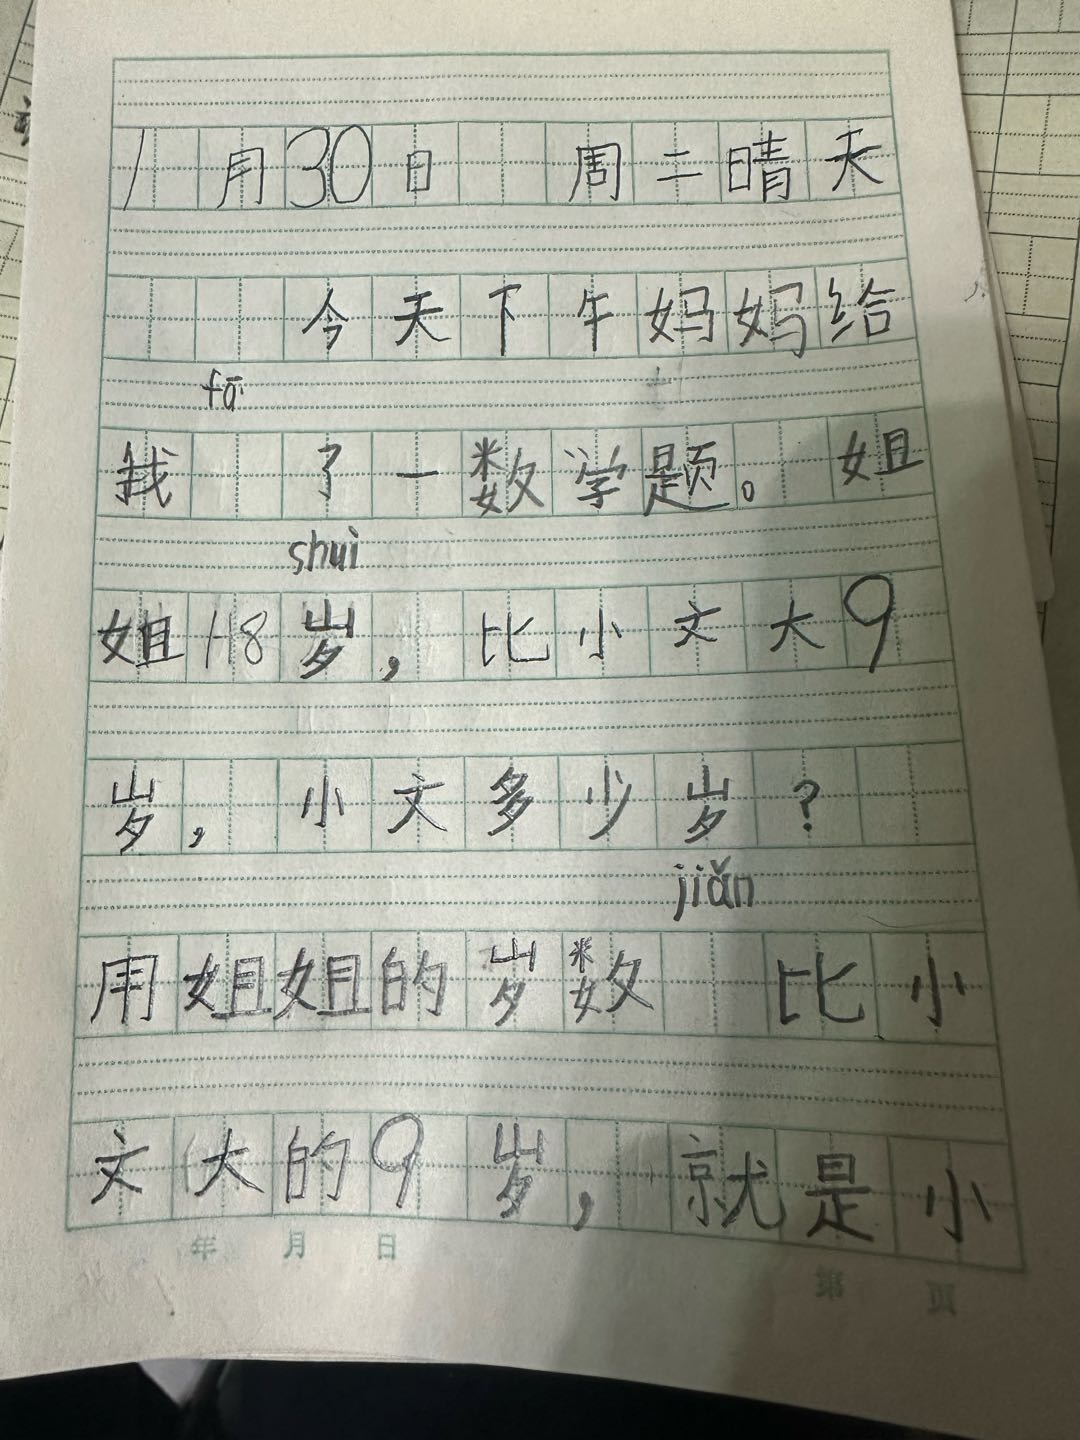 1月30日 周二晴天
今天下午妈妈给
fā
我 了一数学题。姐
shuì
姐18岁,比小文大9
岁,小文多少岁?
jiǎn
用姐姐的岁数 比小
文大的9岁,就是小
年 月 日
第 页